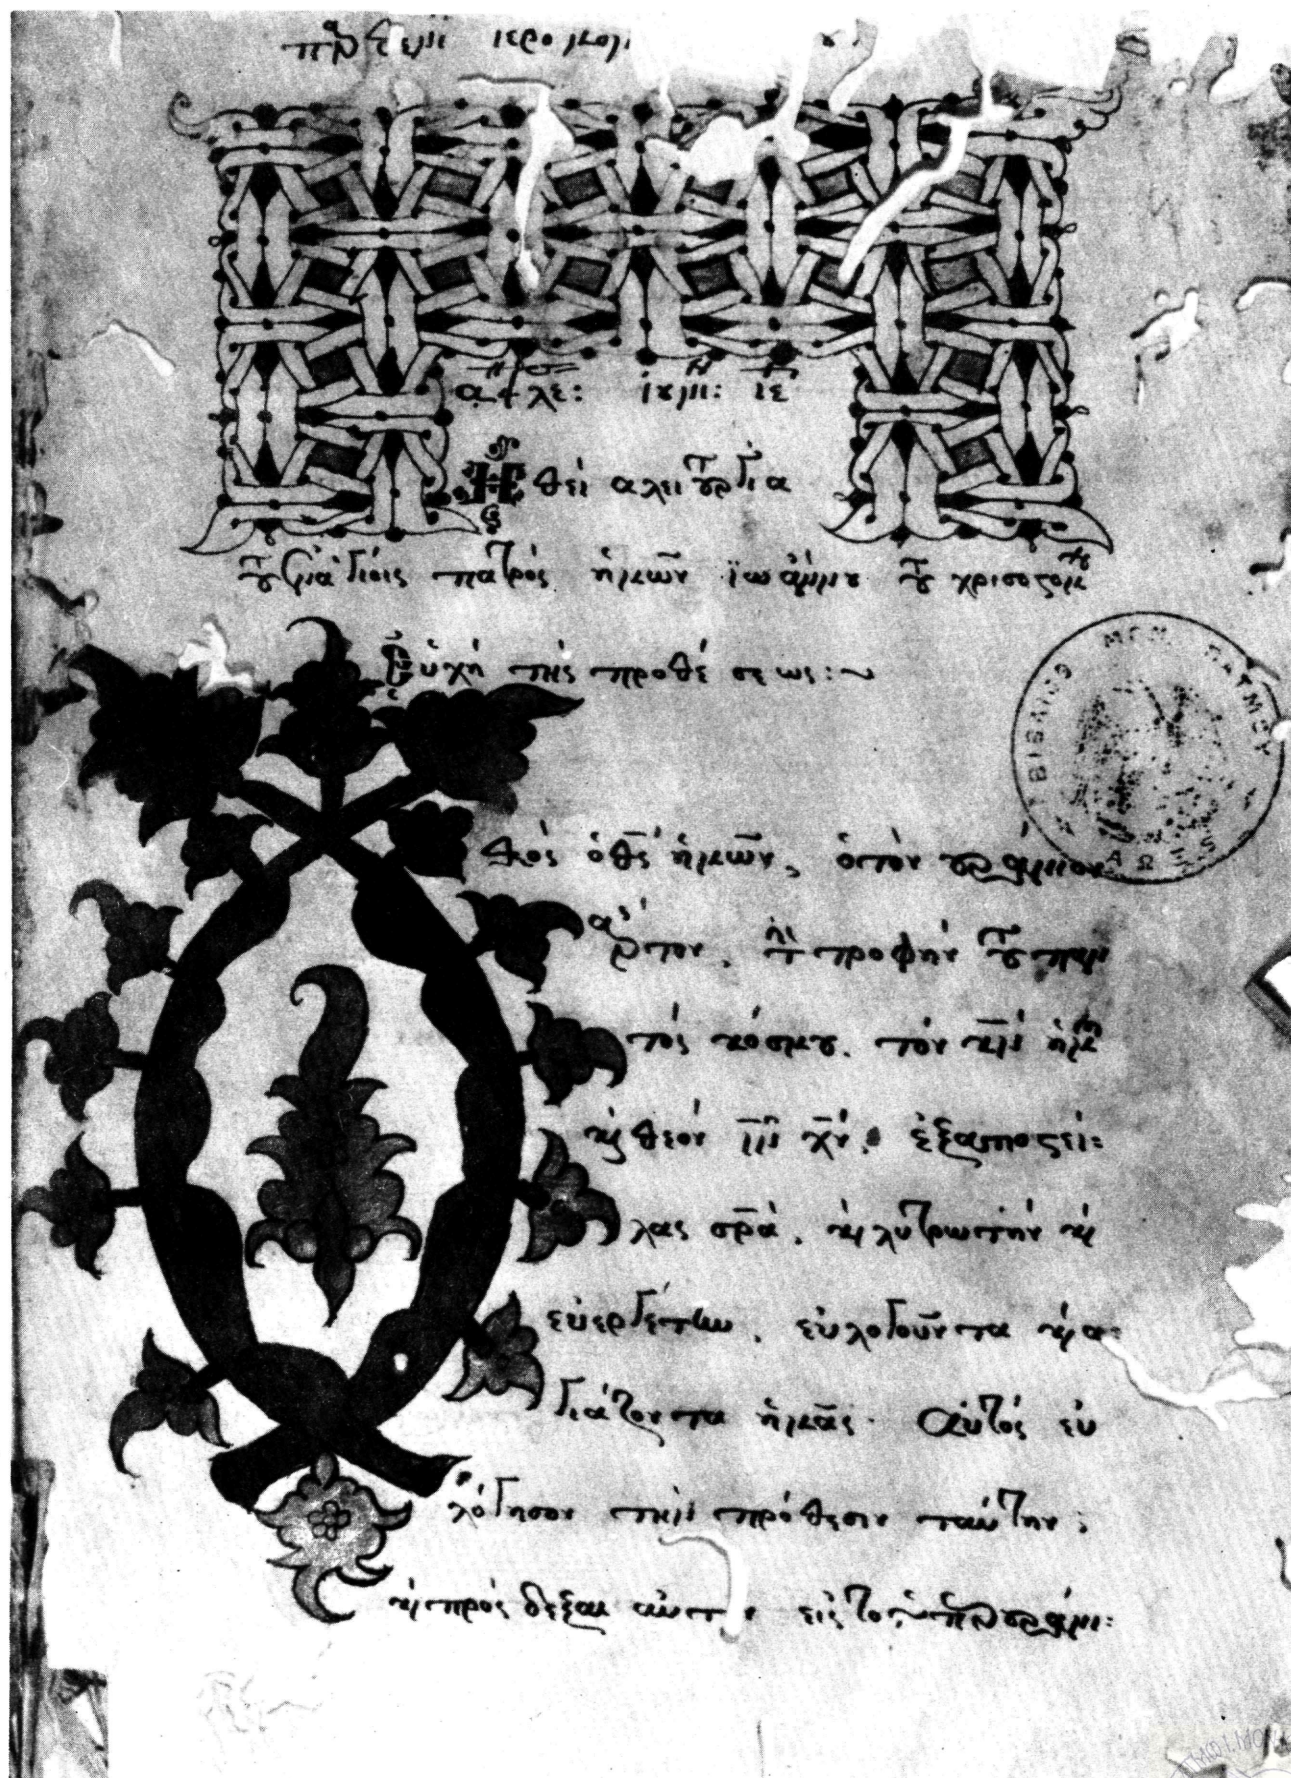 ἱερομο
αφλε: ἰουνι: ιε
Ἡ θεία λειτουργία
τοῦ ἐν ἁγίοις πατρὸς ἡμῶν ἰωάννου τοῦ χρυσοστόμου
Εὐχὴ τῆς προθέσεως:~
θεὸς ὁ θς ἡμῶν, ὁ τὸν οὐράνιον
ἄρτον, τὴν τροφὴν τοῦ παν
τὸς κόσμου. τὸν κν ἡμῶν
καὶ θεὸν ιν χν. ἐξαποστεί:
λας σρα. καὶ λυτρωτὴν καὶ
εὐεργέτην. εὐλογοῦντα καὶ ἁ:
γιάζοντα ἡμᾶς. αὐτὸς εὐ
λόγησον τὴν πρόθεσιν ταύτην:
καὶ πρόσδεξαι αὐτὴν εἰς τὸ ὑπερουράνι:
ΒΙΒΛΙΟΘ ΜΟΝ ΠΑΤΜΟΥ